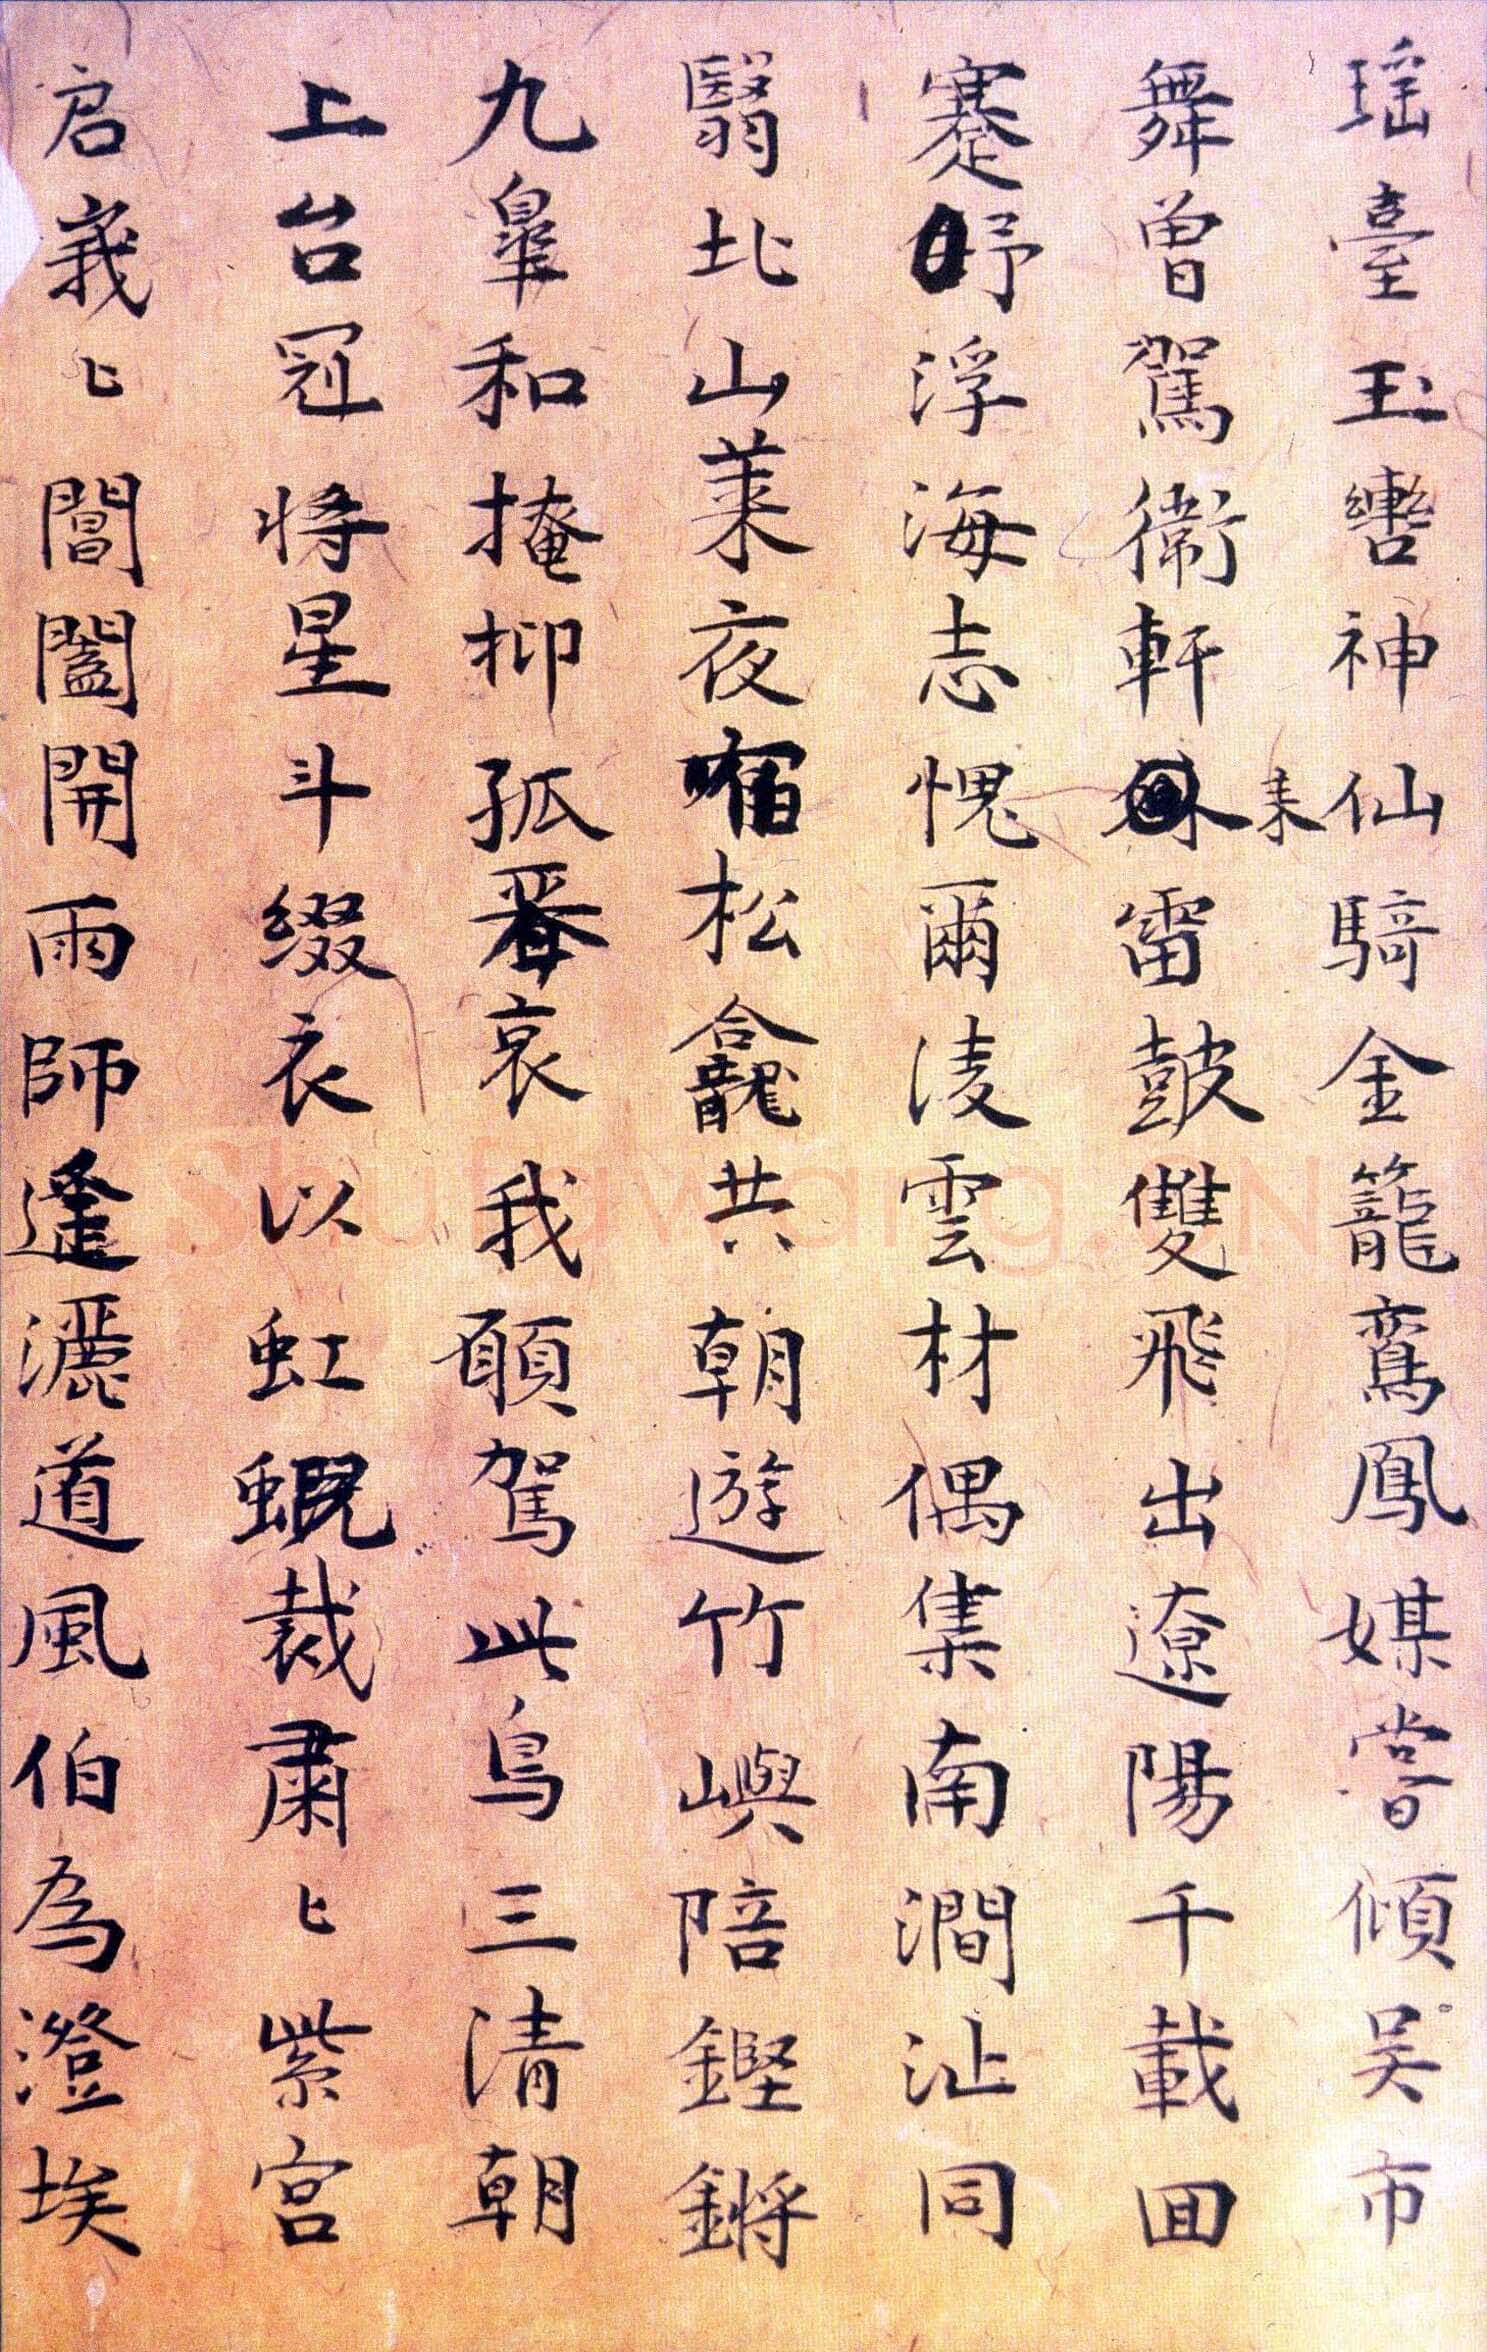 瑶臺玉轡神仙騎金籠鸞鳳媒嘗傾吴市
舞曾駕衛軒来雷鼓雙飛出遼陽千載囬
蹇予浮海志愧爾淩雲材偶集南澗沚同
翳北山萊夜宿松龕共朝遊竹嶼陪鏗鏘
九臯和掩抑孤哀我願駕此鳥三清朝
上台冠将星斗綴衣以虹蜺裁肅〻紫宮
启峩〻閶闔開雨師逢灑道風伯為澄埃
Shufawang.CN